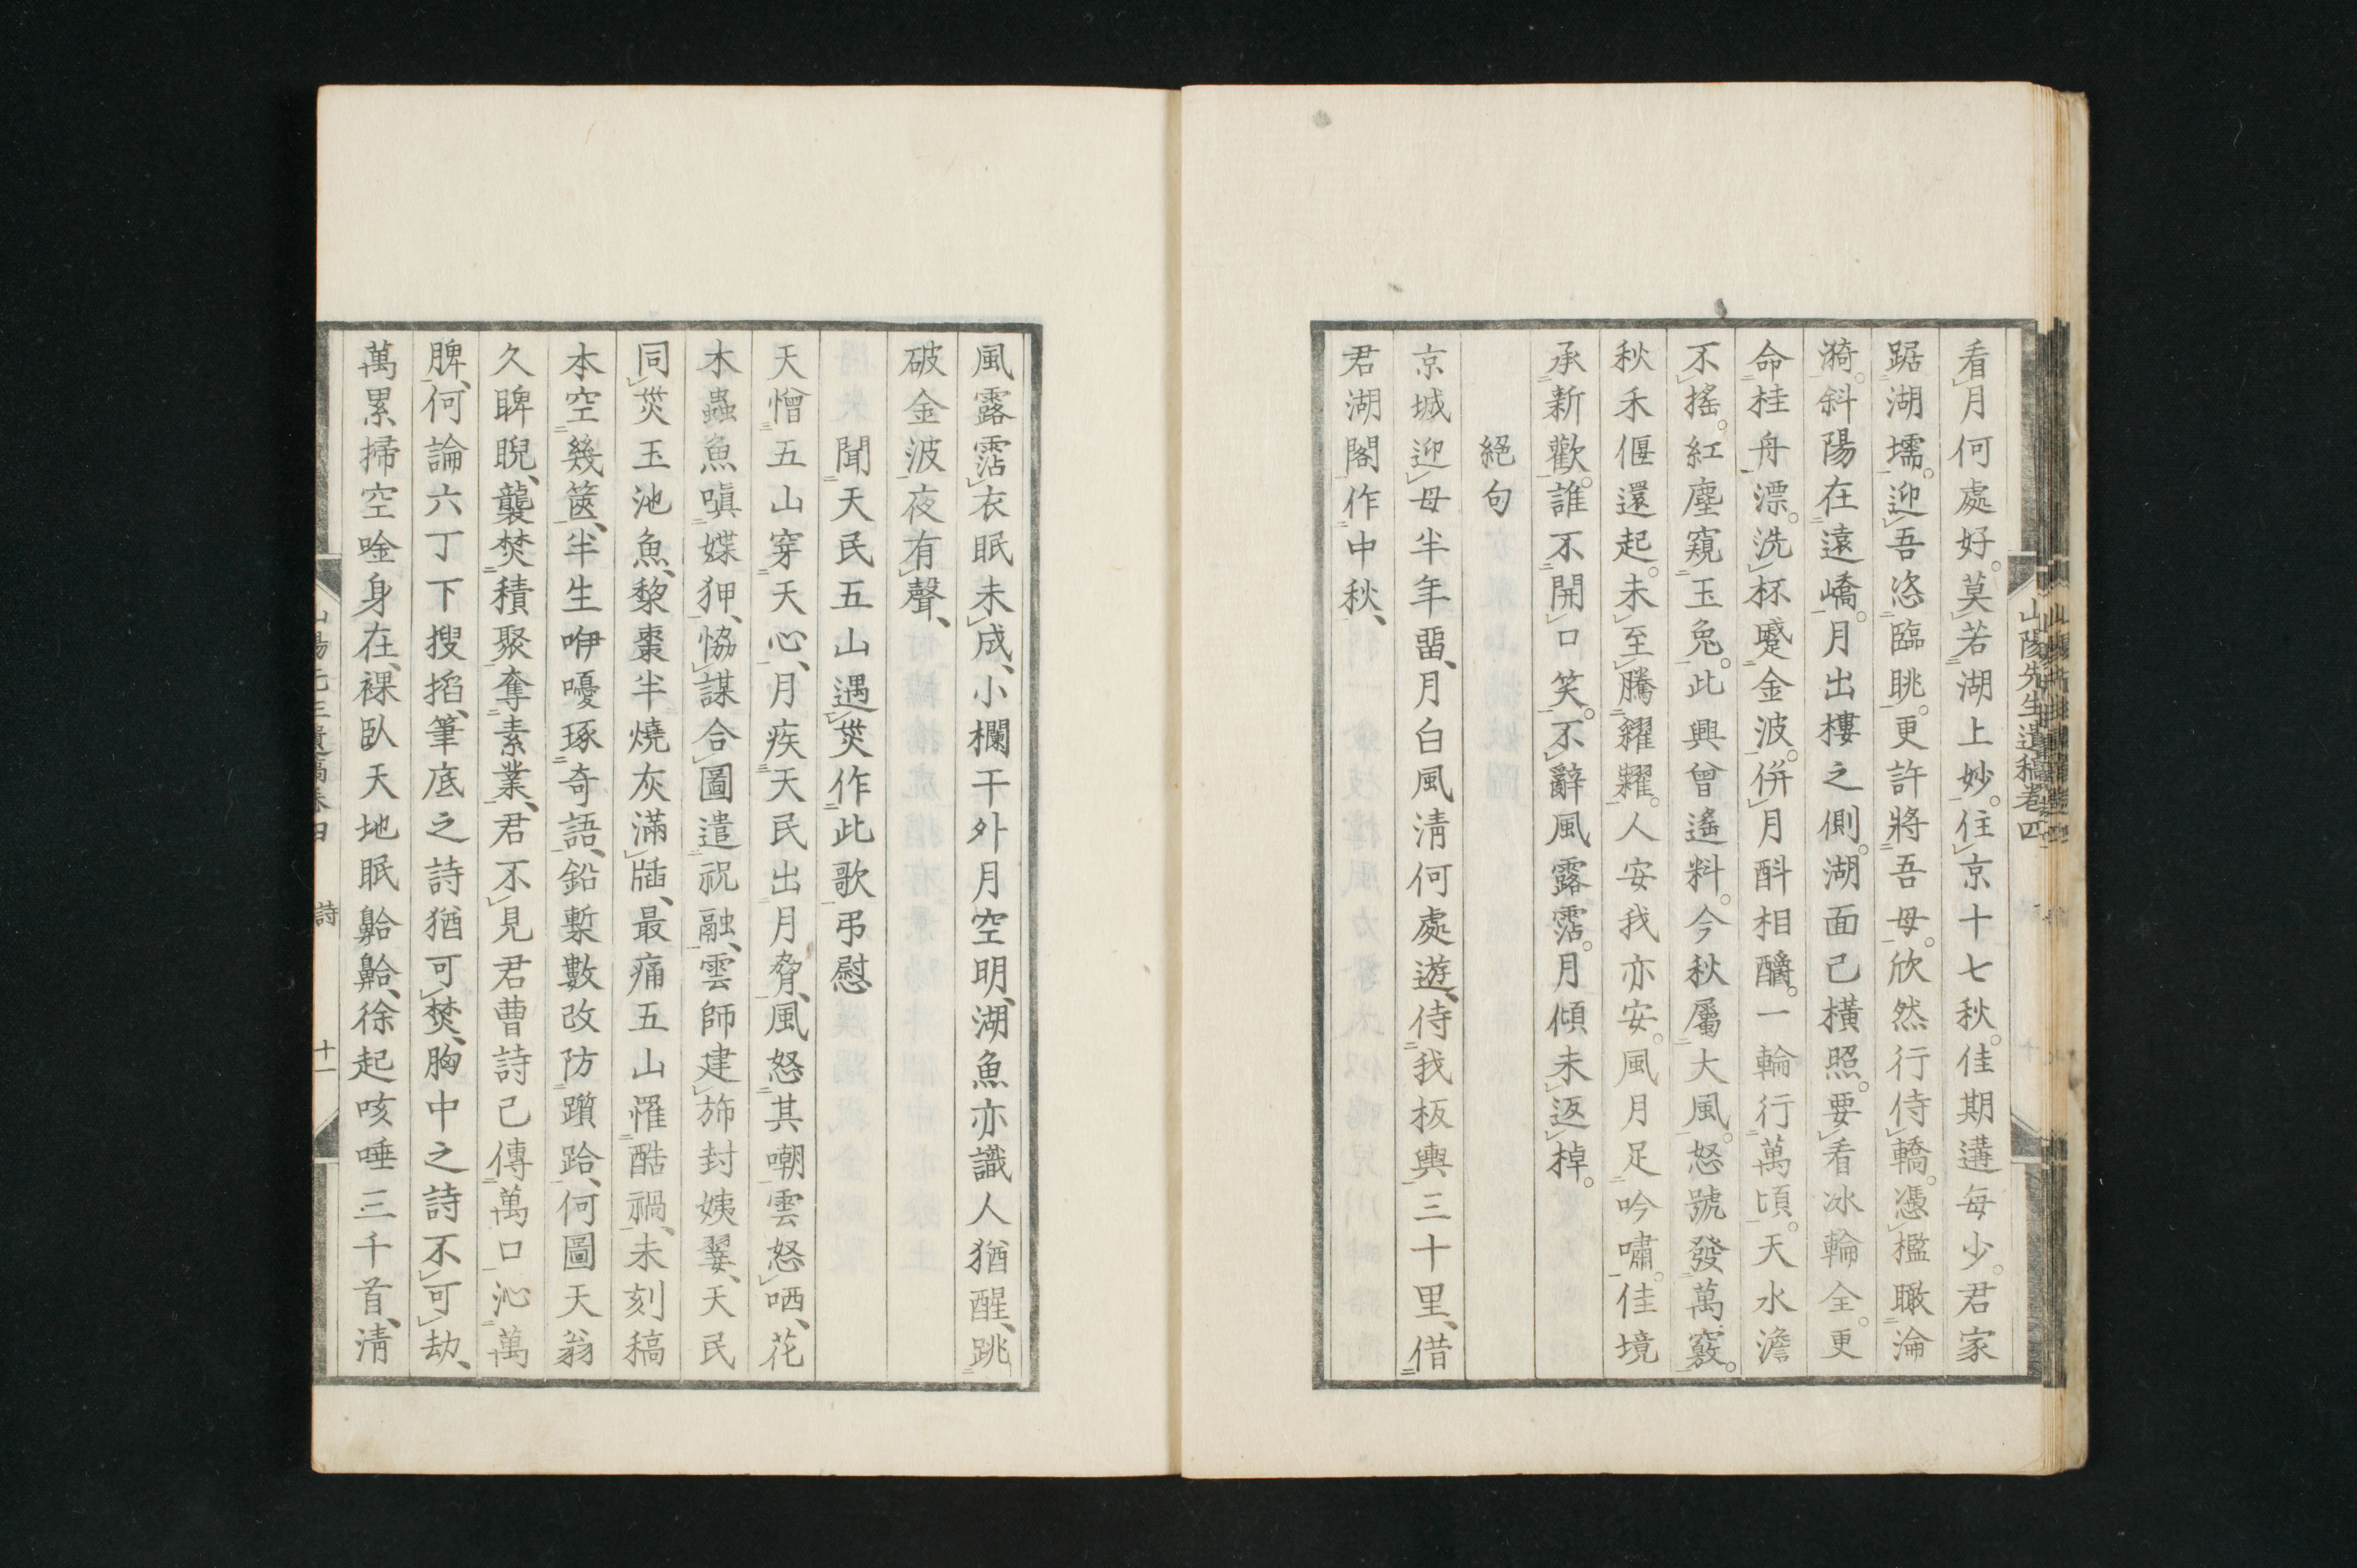 山陽先生遺稿卷四
看月何處好。莫若湖上妙。住京十七秋。佳期遘每少。君家
踞湖壖。迎吾恣臨眺。更許將吾母。欣然行侍轎。憑檻瞰淪
漪。斜陽在遠嶠。月出樓之側。湖面已橫照。要看冰輪全。更
命桂舟漂。洗杯蹙金波。併月酙相釂。一輪行萬頃。天水澹
不搖。紅塵窺玉兔。此興曾遙料。今秋屬大風。怒號發萬竅。
秋禾偃還起。未至騰糴糶。人安我亦安。風月足吟嘯。佳境
承新歡。誰不開口笑。不辭風露霑。月傾未返棹。
絕句
京城迎母半年畱、月白風淸何處遊、侍我板輿三十里、借
君湖閣作中秋、
風露霑衣眠未成、小欄干外月空明、湖魚亦識人猶醒、跳
破金波夜有聲、
聞天民五山遇災作此歌弔慰
天憎五山穿天心、月疾天民出月脅、風怒其嘲雲怒哂、花
木蟲魚嗔媟狎、恊謀合圖遣祝融、雲師建斾封姨翣、天民
同災玉池魚、黎棗半燒灰滿牐、最痛五山罹酷禍、未刻稿
本空幾篋、半生咿嚘琢奇語、鉛槧數改防躓跲、何圖天翁
久睥睨、襲焚積聚奪素業、君不見君曹詩已傳萬口沁萬
脾、何論六丁下搜搯、筆底之詩猶可焚、胸中之詩不可劫、
萬累掃空唫身在、裸臥天地眠齁齁、徐起咳唾三千首、淸
詩
十一